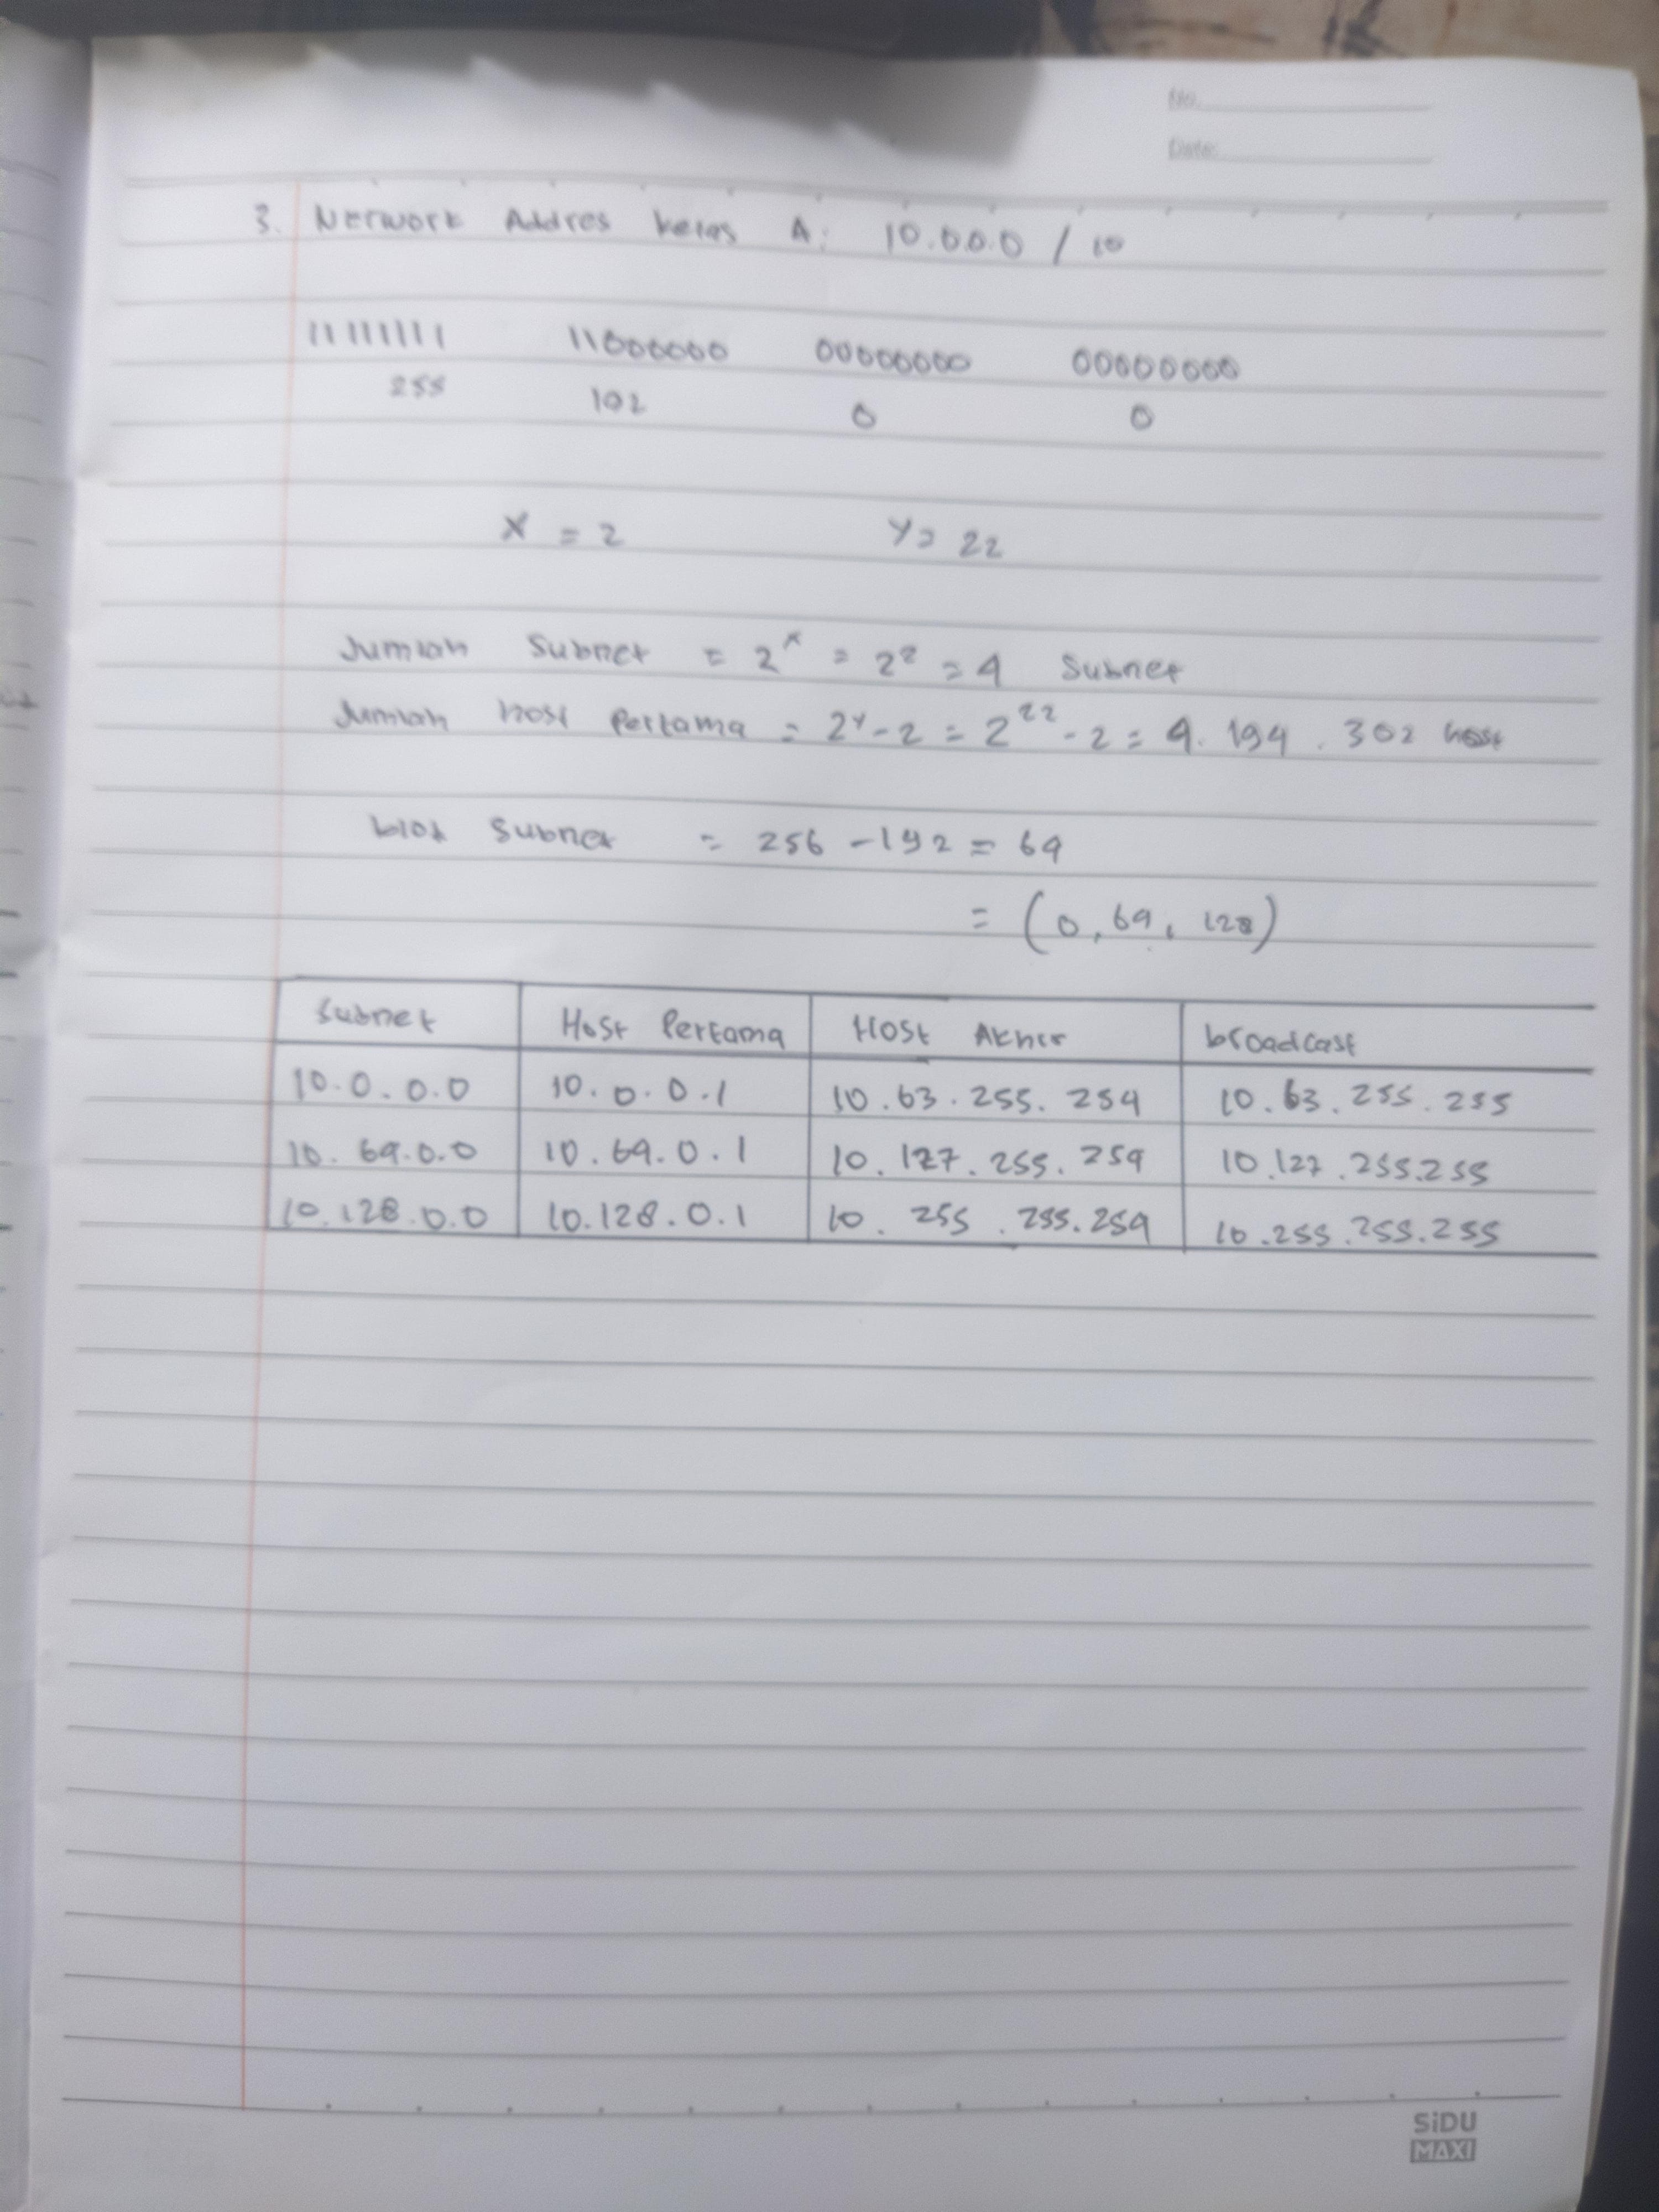 No.
Date:
3. Network Addres kelas A: 10.0.0.0 / 10
11111111 11000000 00000000 00000000
255 192 0 0
X = 2 Y = 22
Jumlah Subnet = 2^x = 2^2 = 4 Subnet
Jumlah host Pertama = 2^y - 2 = 2^22 - 2 = 4.194.302 host
blok subnet = 256 - 192 = 64
= (0, 64, 128)
Subnet Host Pertama Host Akhir broadcast
10.0.0.0 10.0.0.1 10.63.255.254 10.63.255.255
10.64.0.0 10.64.0.1 10.127.255.254 10.127.255.255
10.128.0.0 10.128.0.1 10.255.255.254 10.255.255.255
SiDU
MAXI